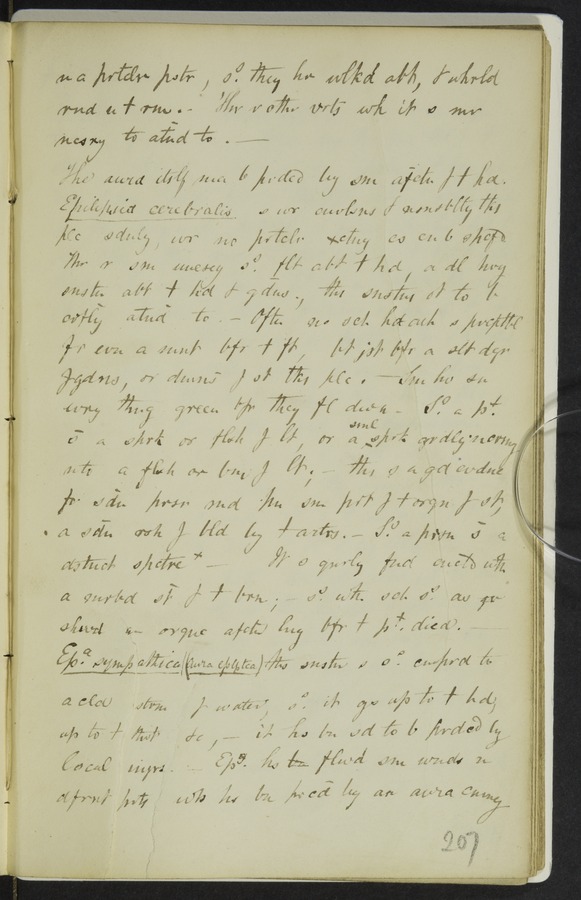 n a prtclr pstr, s.º they hv wlkd abt, & whrld
rnd n t rm. - Thr r othr vrts wh it s mr
ncsry to atnd to. —
Tho aura itslf ma b prcdd by sm afctn f t hd.
Epilepsia cerebralis s wr cnvlsns & insnsblty tk
plc sdnly, wr no prtclr cs cn b spcfd
Thr r sm unesy s.º flt abt t hd, a dl hvy
snstn abt t hd & gdns., ths snstns ot to b
crfly atnd to. - Oftn no sch hdach s prcptbl
fr evn a mnt bfr t ft, bt jst bfr a slt dgr
f gdns, or dmns f st tks plc. - Sm hv sn
evry thng green bfr they fl dwn - S.º a pt.
s a sprk or flsh f lt, or a sml sprk grdly ncrsng
nto a flsh or bm f lt; - ths s a gd evdnc
fr sdn prsr nd hu sm prt f t orgn f st,
a sdn rsh f bld by t artrs. - S.º a prsn s a
dstnct spctre + — It s gnrly fnd cnctd wth
a mrbd st f t brn; - s.º wth sch s.º as
shwd an orgnc afctn lng bfr t pt. died. —
Ep.ª sympathica (aura epleptca) ths snstn s s.º cmprd to
a cld strm f water, s.º it gs up to t hd,
up to t thrt &c, - it hs bn sd to b prcdd by
local injrs. - Ep.ª hs bn flwd sm wnds n
dfrnt prts wh hs bn prcd by an aura cmng
207